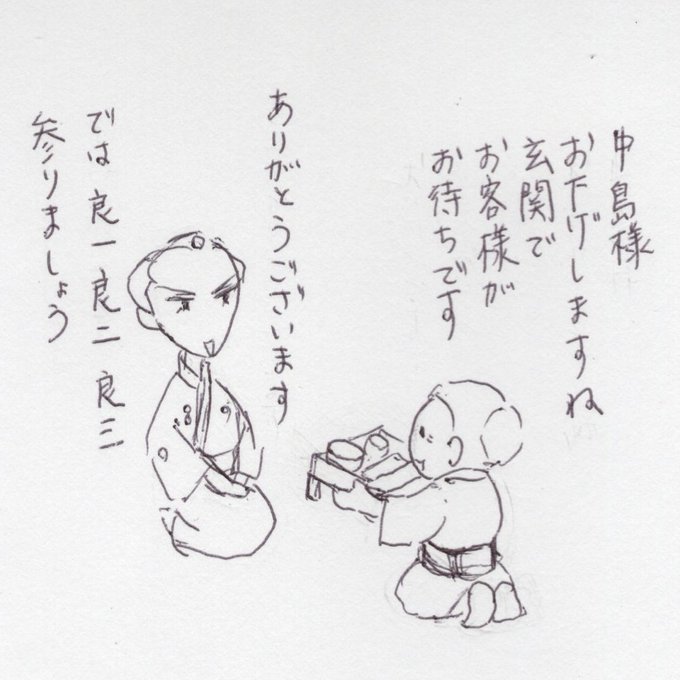 中島様
お下げしますね
玄関で
お客様が
お待ちです
ありがとうございます
では 良一 良二 良三
参りましょう